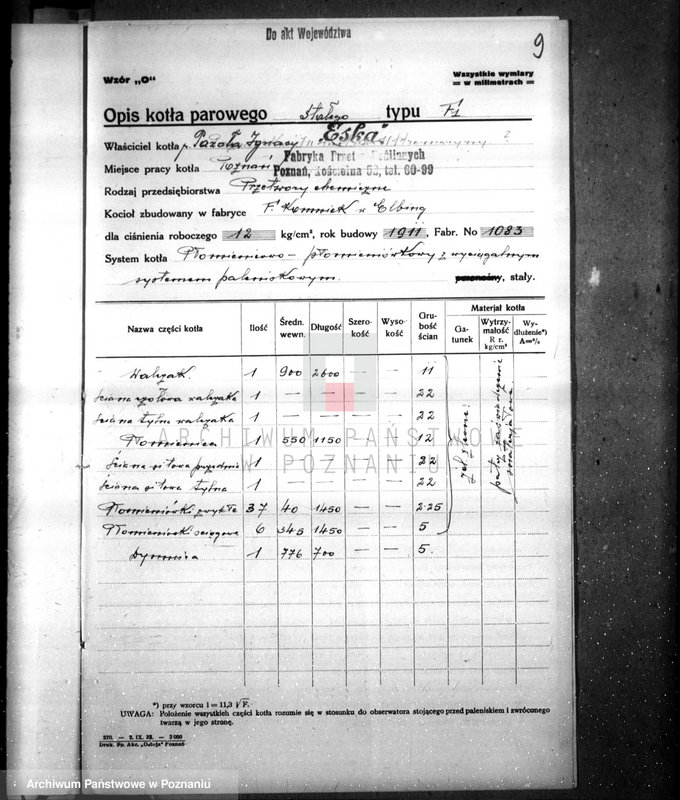 Do akt Województwa
9
Wzór „O"
Wszystkie wymiary
— w milimetrach —
Opis kotła parowego stałego typu F1
„Eska"
Właściciel kotła p. Ignacy
Fabryka
Miejsce pracy kotła Poznań
Poznań, Kościelna 52, tel. 60-99
Rodzaj przedsiębiorstwa Przetwory chemiczne
Kocioł zbudowany w fabryce F. Komnick w Elbing
dla ciśnienia roboczego 12 kg/cm², rok budowy 1911, Fabr. No 1083
System kotła Płomienicowo - płomieniówkowy z wyciągalnym
systemem paleniskowym. przenośny, stały.
Nazwa części kotła Ilość Średn. wewn. Długość Szerokość Wysokość Grubość ścian Materjał kotła
Gatunek Wytrzymałość R r. kg/cm² Wydłużenie*) A=%
Walczak 1 900 2600 — — 11
Ściana czołowa walczaka 1 — — — — 22
Ściana tylna walczaka 1 — — — — 22
Płomienica 1 550 1150 — — 12
Ściana sitowa przednia 1 — — — — 22
Ściana sitowa tylna 1 — — — — 22
Płomieniówki zwykłe 37 40 1450 — — 2.25
Płomieniówki ściągowe 6 34.5 1450 — — 5
Dymnica 1 776 700 5.
patrz zaświadczenie
ARCHIWUM PAŃSTWOWE
W POZNANIU
*) przy wzorcu l = 11,3 √F.
UWAGA: Położenie wszystkich części kotła rozumie się w stosunku do obserwatora stojącego przed paleniskiem i zwróconego
twarzą w jego stronę.
370. — 2. IX. 32. — 2000
Druk. Pp. Akc. „Ostoja" Poznań
Archiwum Państwowe w Poznaniu